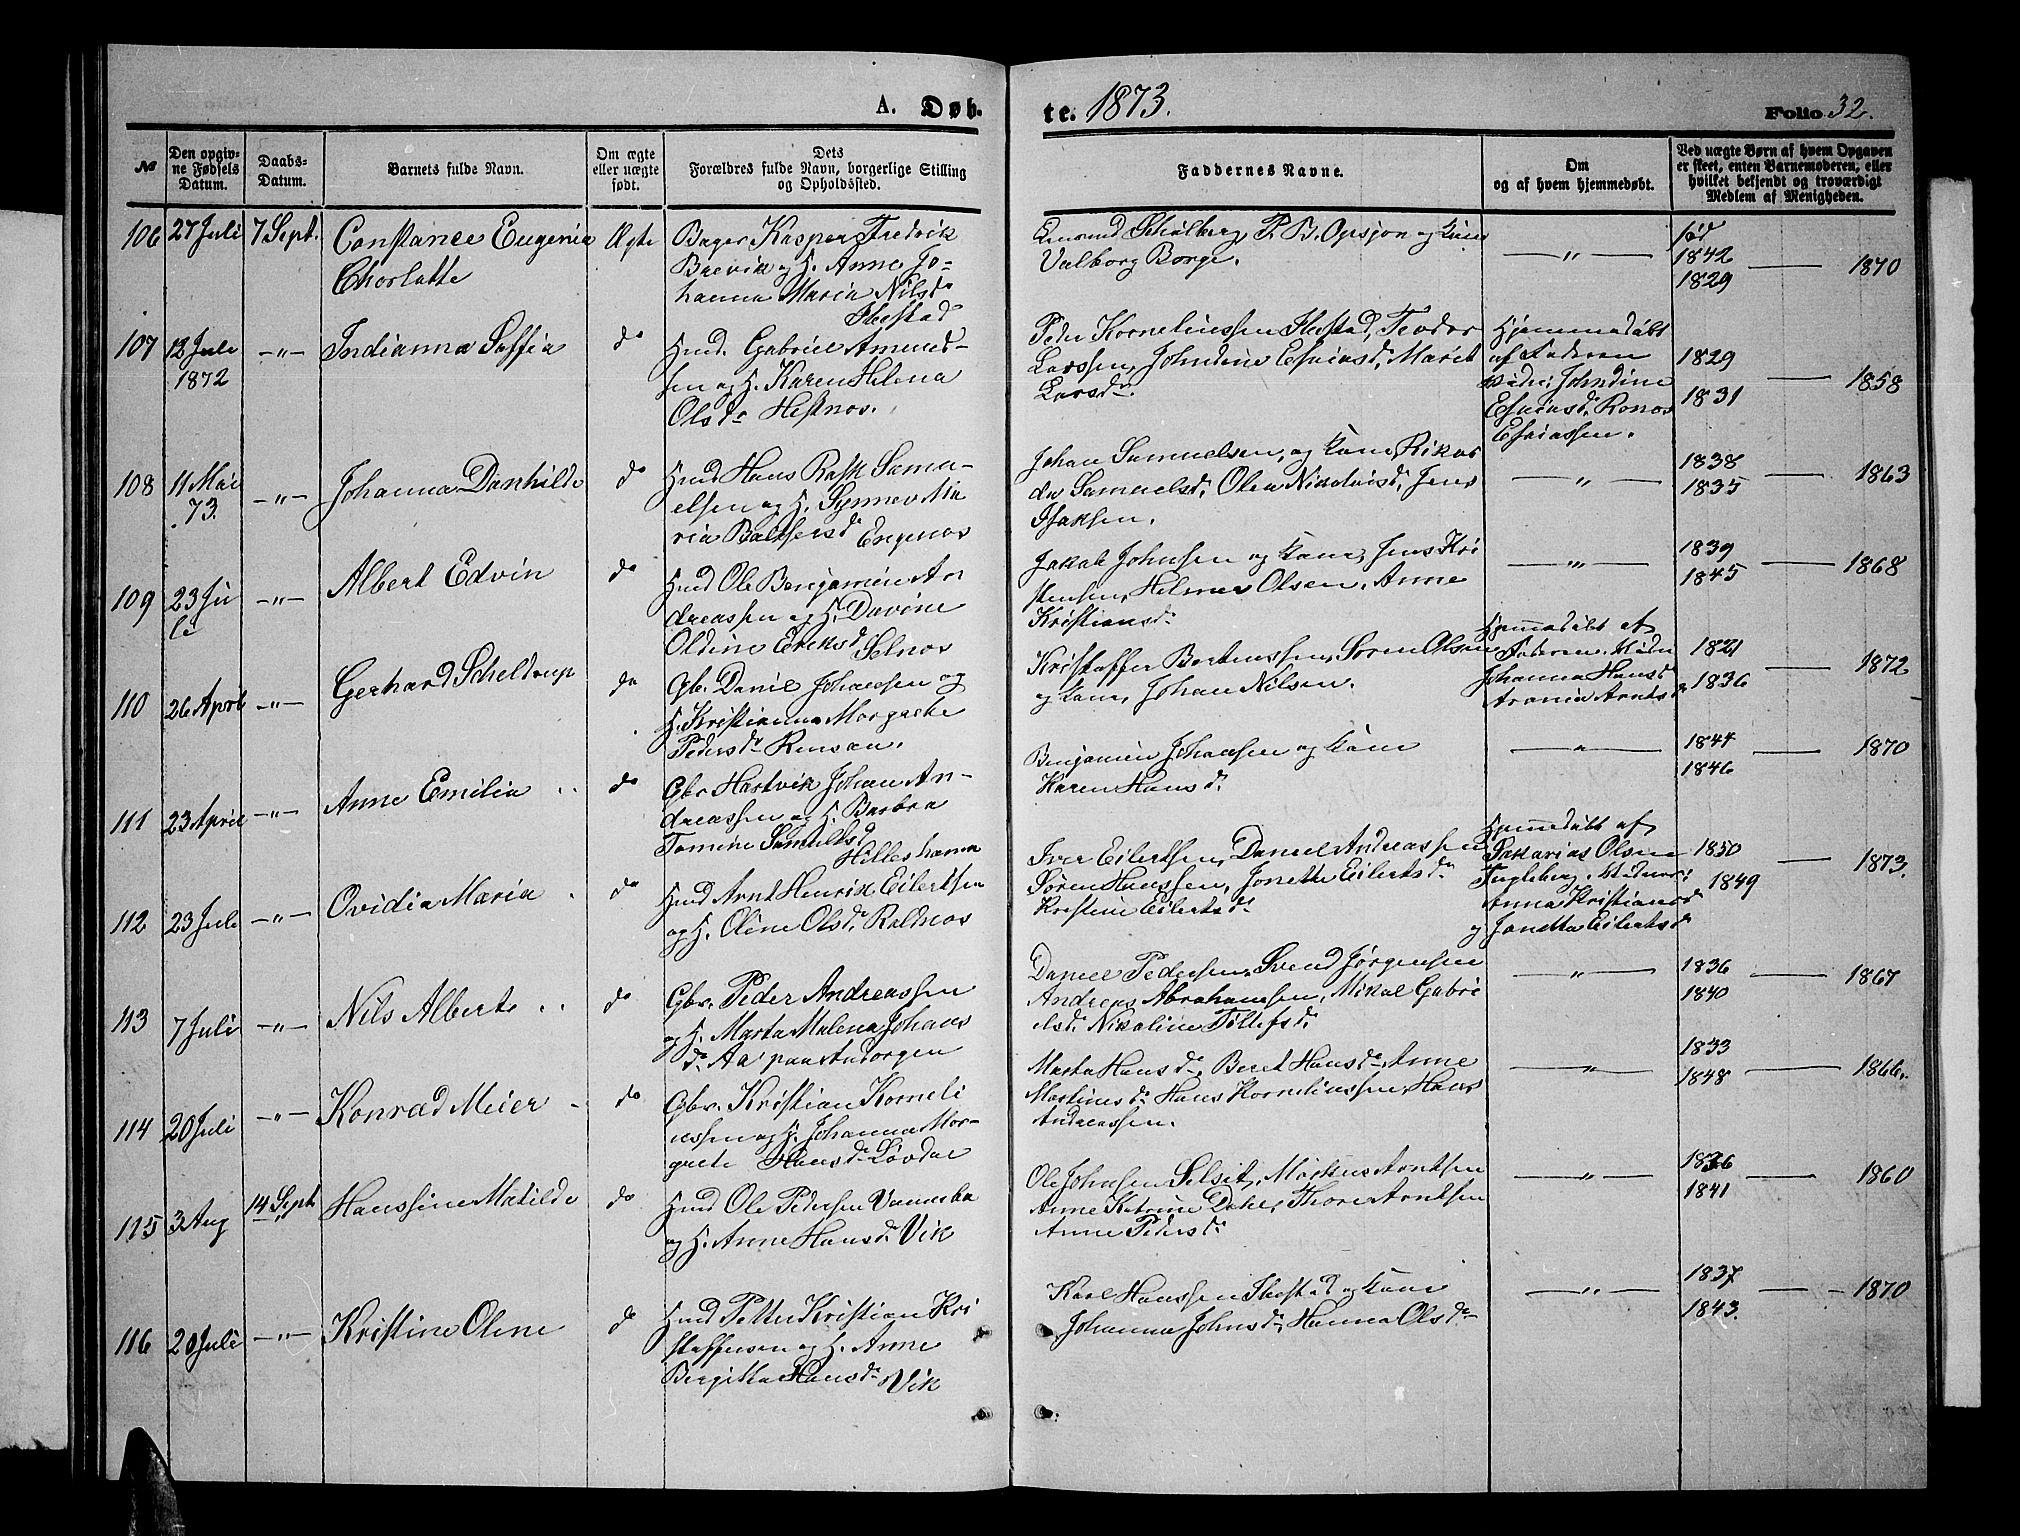 A. Døb-
te. 1873.
Folio 32.
№
Den opgiv-
ne Fødsels
Datum.
Daabs-
Datum.
Barnets fulde Navn.
Om ægte
eller uægte
født.
Dets
Forældres fulde Navn, borgerlige Stilling
og Opholdssted.
Faddernes Navne.
Om
og af hvem hjemmedøbt.
Ved uægte Børn af hvem Opgaven
er skeet, enten Barnemoderen, eller
hvilket bekjendt og troværdigt
Medlem af Menigheden.
106 27 Juli 7 Sept.
Constance Eugenia
Chorlatte
Ægte
Bager Kasper Fredrik
Brevik og H. Anne Jo-
hanna Maria Nilsdr
Ibestad
Schølberg, P. B. Opsjon og Kone
Valborg Borge.
— " —
fød
1842
1829 — 1870
107 12 Juli
1872
— " —
Indianna Soffia
do
Hmd. Gabriel Amund-
sen og H. Karen Helena
Olsdr Hestnes.
Peder Korneliussen Ibestad, Teodor
Larssen, Johndine Esaiasdr Marit
Larsdr.
Hjemmedøbt
af Faderen
Johndine
Esaiasdr Ronos
Esaiassen.
1829
1831 — 1858
108 11 Mai
73.
— " —
Johanna Danhilde
do
Hmd Hans Rask Samu-
elsen og H. Synnev Ma
ria Baltsersdr Engenos
Johan Samuelsen, og Kone, Rikar
da Samuelsdr, Olea Nikolaisdr, Jens
Isaksen.
— " —
1838
1835 — 1863
109 23 Ju
li
— " —
Albert Edvin
do
Hmd Ole Benjamin An
dreassen og H. Davine
Oldine Eriksdr Selnos
Jakob Johnsen og Kone, Jens Kri
stensen, Helmer Olsen, Anne
Kristiansdr
— " —
1839
1845 — 1868
110 26 April
— " —
Gerhard Scheldrup
do
Gb. Danil Johansen og
H. Kristianna Margrethe
Pedersdr Rensaa.
Kristoffer Berteussen, Søren Olsen
og Kone, Johan Nilsen.
Hjemmedøbt af
Faderen
Johanna Hansdr
Arntsdr
1821
1836 — 1872
111 23 April
— " —
Anne Emilia
do
Gbr Hartvik Johan An-
dreassen og H. Barbra
Tomine Samuelsdr
Hilleshamn
Benjamin Johansen og Kone
Karen Hansdr
— " —
1844
1846 — 1870
112 23 Juli
— " —
Ovidia Maria
do
Hmd Arnt Henrik Eilertsen
og H. Oline Olsdr, Roldnos
Iver Eilertsen, Daniel Andreassen
Søren Hanssen, Jonette Eilertsdr
Kristine Eilertsdr
Hjemmedøbt af
Sakarias Olsen
Anna Kristiansdr
og Janetta Eilertsdr
1850
1849 — 1873.
113 7 Juli
— " —
Nils Alberts
do
Gbr. Peder Andreassen
og H. Marta Malena Johans
dr Aa paa Andorgen
Daniel Pedersen, Svend Jørgensen
Andreas Abrahamsen, Mikal Gabri
elsdr Nikoline Tollefsdr
— " —
1836
1840 — 1867
114 20 Juli
— " —
Konrad Meier
do
Gbr. Kristian Korneli
ussen og H. Johanna Mar-
grete Hansdr Løvdal
Marta Hansdr, Beret Hansdr, Anne
Martinesdr Hans Korneliussen, Hans
Andreassen.
— " —
1833
1848 — 1866.
115 3 Aug 14 Sept
Hanssine Matilde
do
Hmd Ole Pedersen
og H. Anne Hansdr Vik
Ole Johnsen Selset, Markus Arntsen
Anne Katrine Thore Arntsen
Anne Pedersdr
— " —
1836
1841 — 1860
116 20 Juli
— " —
Kristine Oline
do
Hmd Petter Kristian Kri
stoffersen og H. Anne
Bergitta Hansdr Vik
Karl Hanssen Ibestad og Kone
Johanna Johnsdr, Hanna Olsdr
— " —
1837
1843. — 1870